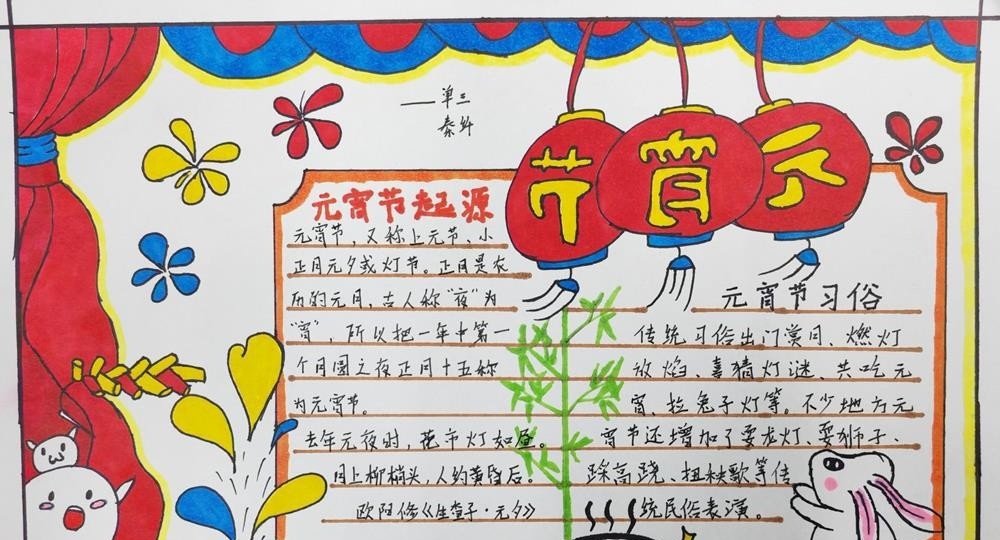 ——单三
秦外
节宵元
元宵节起源
元宵节，又称上元节、小
正月元夕或灯节。正月是农
历的元月，古人称“夜”为
“宵”，所以把一年中第一
个月圆之夜正月十五称
为元宵节。
去年元夜时，花市灯如昼。
月上柳梢头，人约黄昏后。
欧阳修《生查子·元夕》
元宵节习俗
传统习俗出门赏月、燃灯
放焰、喜猜灯谜、共吃元
宵、拉兔子灯等。不少地方元
宵节还增加了耍龙灯、耍狮子、
踩高跷、扭秧歌等传
统民俗表演。